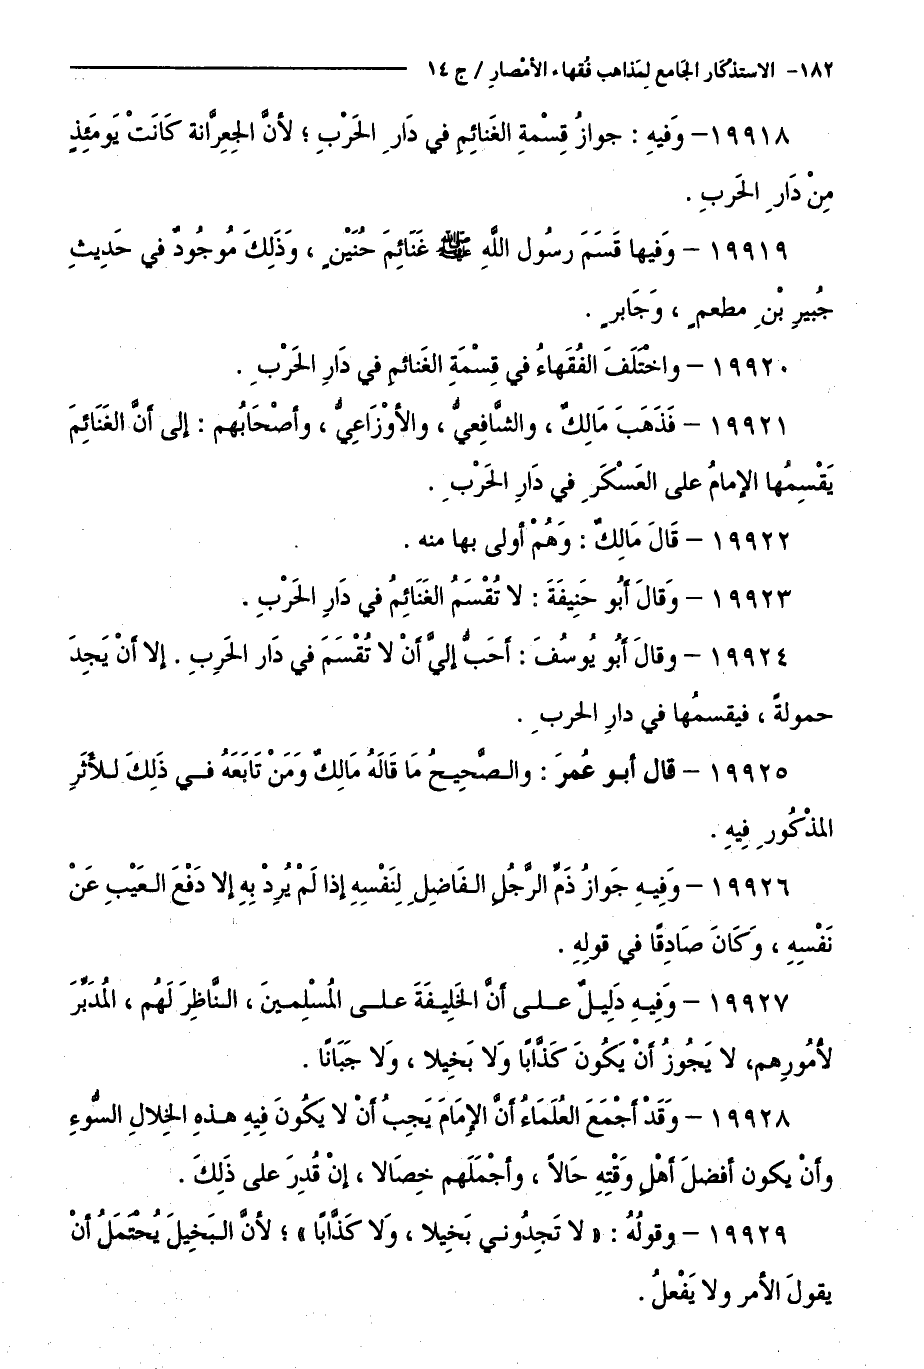 ١٨٢- الاستذكار الجامع لمذاهب فقهاء الأمصار / ج ١٤
١٩٩١٨- وَفيهِ : جوازُ قِسْمةِ الغَنائِمِ في دَارِ الحَرْبِ ؛ لأنَّ الجِعِرَّانة كَانَتْ يَومَئِذٍ
مِنْ دَارِ الحَربِ .
١٩٩١٩ - وَفيها قَسَمَ رسُول اللَّهِ ﷺ غَنَائِمَ حُنَيْنٍ ، وَذَلِكَ مُوجُودٌ في حَدِيثِ
جُبيرِ بْنِ مطعمٍ ، وَجَابرٍ .
١٩٩٢٠ - واخْتَلَفَ الفُقَهاءُ في قِسْمَةِ الغَنائمِ في دَارِ الحَرْبِ .
١٩٩٢١ - فَذَهَبَ مَالِكٌ ، والشَّافِعيُّ ، والأوْزَاعِيُّ ، وأصْحَابُهم : إلى أنَّ الغَنَائِمَ
يَقْسِمُها الإمامُ على العَسْكَرِ في دَارِ الحَرْبِ .
١٩٩٢٢ - قَالَ مَالِكٌ : وَهُمْ أولى بها منه .
١٩٩٢٣ - وَقالَ أبُو حَنِيفَةَ : لا تُقْسَمُ الغَنَائِمُ في دَارِ الحَرْبِ .
١٩٩٢٤ - وقالَ أبُو يُوسُفَ : أحَبُّ إليَّ أنْ لا تُقْسَمَ في دَار الحَربِ . إلا أنْ يَجِدَ
حمولةً ، فيقسمُها في دارِ الحربِ .
١٩٩٢٥ - قال أبو عُمرَ : والصَّحِيحُ مَا قَالَهُ مَالِكٌ وَمَنْ تَابَعَهُ في ذَلِكَ للأثَرِ
المذْكُورِ فِيهِ .
١٩٩٢٦ - وَفِيهِ جَوازُ ذَمِّ الرَّجُلِ الفَاضِلِ لِنَفْسِهِ إذا لَمْ يُرِدْ بِهِ إلا دَفْعَ العَيْبِ عَنْ
نَفْسِهِ ، وَكَانَ صَادِقًا في قولِهِ .
١٩٩٢٧ - وَفِيهِ دَلِيلٌ على أنَّ الخَلِيفَةَ على المُسْلِمينَ ، النَّاظِرَ لَهُم ، المُدَبِّرَ
لأُمُورِهم، لا يَجُوزُ أنْ يَكُونَ كَذَّابًا وَلا بَخِيلا ، وَلا جَبَانًا .
١٩٩٢٨ - وَقَدْ أجْمَعَ العُلَمَاءُ أنَّ الإِمَامَ يَجِبُ أنْ لا يَكُونَ فِيهِ هذهِ الخِلالِ السُّوءِ
وأنْ يكون أفضلَ أهْلِ وَقْتِهِ حَالاً ، وأجْمَلَهم خِصَالا ، إنْ قُدِرَ على ذَلِكَ .
١٩٩٢٩ - وقولُهُ : « لا تَجِدُوني بَخيلا ، وَلا كَذَّابًا » ؛ لأنَّ البَخِيلَ يُحْتَمَلُ أنْ
يقولَ الأمر ولا يَفْعلُ .